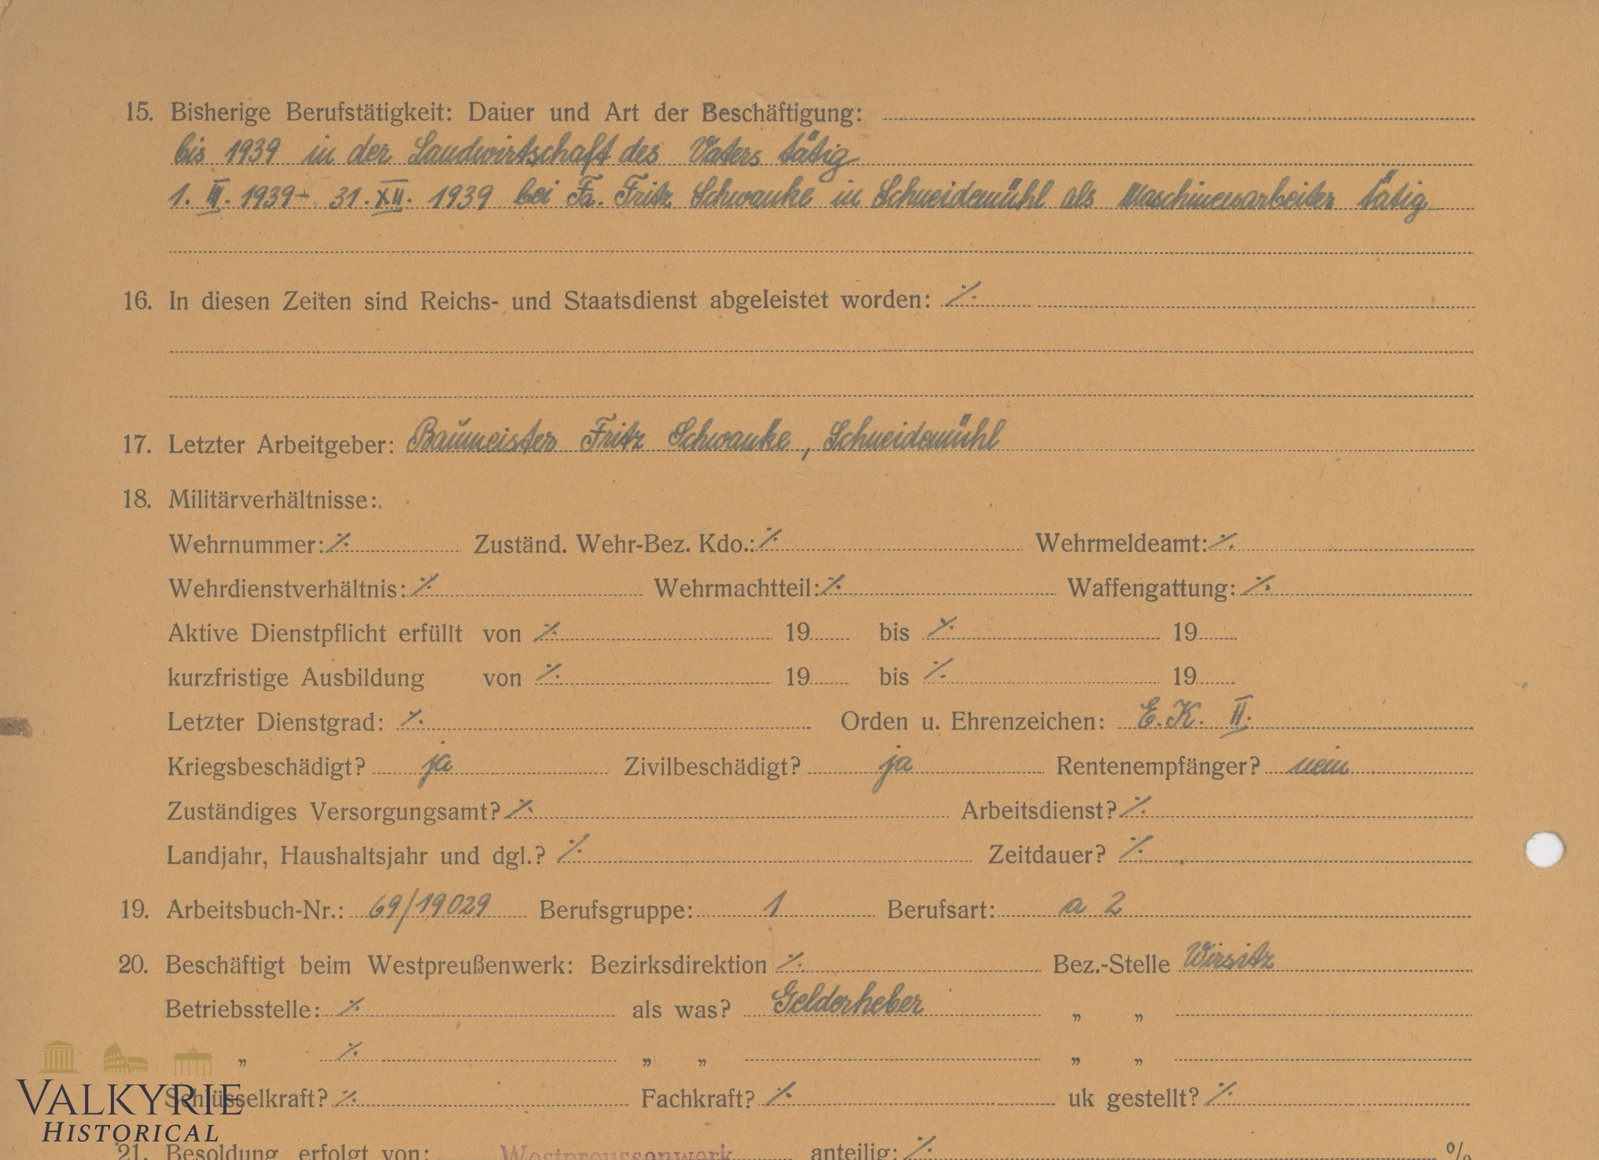 15. Bisherige Berufstätigkeit: Dauer und Art der Beschäftigung:
bis 1939 in der Landwirtschaft des Vaters tätig
1. III. 1939 - 31. XII. 1939 bei Fa. Fritz Schwanke in Schneidemühl als Maschinenarbeiter tätig
16. In diesen Zeiten sind Reichs- und Staatsdienst abgeleistet worden: ·/.
17. Letzter Arbeitgeber: Baumeister Fritz Schwanke, Schneidemühl
18. Militärverhältnisse:
Wehrnummer: ·/. Zuständ. Wehr-Bez. Kdo.: ·/. Wehrmeldeamt: ·/.
Wehrdienstverhältnis: ·/. Wehrmachtteil: ·/. Waffengattung: ·/.
Aktive Dienstpflicht erfüllt von ·/. 19 bis ·/. 19
kurzfristige Ausbildung von ·/. 19 bis ·/. 19
Letzter Dienstgrad: ·/. Orden u. Ehrenzeichen: E.K. II.
Kriegsbeschädigt? ja Zivilbeschädigt? ja Rentenempfänger? nein
Zuständiges Versorgungsamt? ·/. Arbeitsdienst? ·/.
Landjahr, Haushaltsjahr und dgl.? ·/. Zeitdauer? ·/.
19. Arbeitsbuch-Nr.: 69/19029 Berufsgruppe: 1 Berufsart: a 2
20. Beschäftigt beim Westpreußenwerk: Bezirksdirektion ·/. Bez.-Stelle Wirsitz
Betriebsstelle: ·/. als was? Gelderheber „ „
„ ·/. „ „ „ „
Schlüsselkraft? ·/. Fachkraft? ·/. uk gestellt? ·/.
VALKYRIE
HISTORICAL
21. Besoldung erfolgt von: Westpreussenwerk anteilig: ·/. %